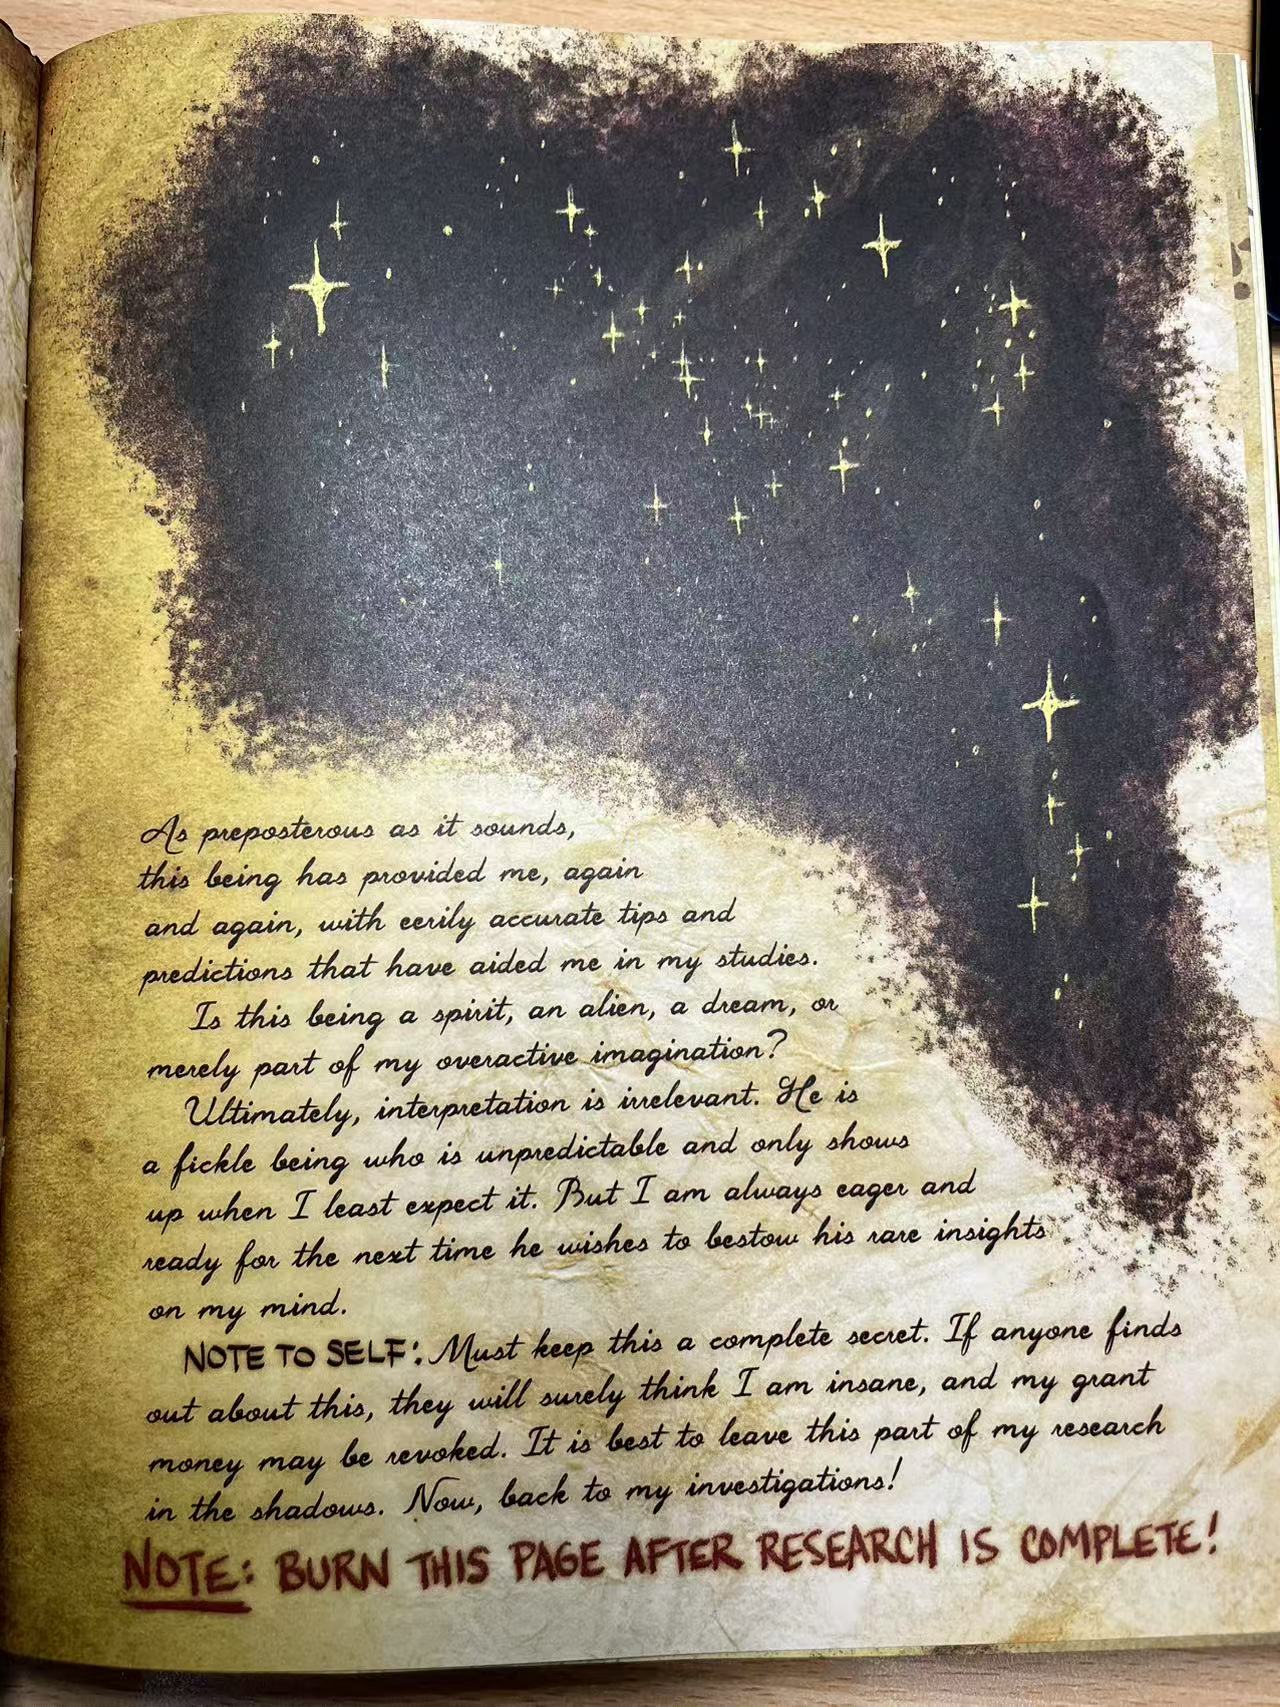 As preposterous as it sounds,
this being has provided me, again
and again, with eerily accurate tips and
predictions that have aided me in my studies.
Is this being a spirit, an alien, a dream, or
merely part of my overactive imagination?
Ultimately, interpretation is irrelevant. He is
a fickle being who is unpredictable and only shows
up when I least expect it. But I am always eager and
ready for the next time he wishes to bestow his rare insights
on my mind.
NOTE TO SELF: Must keep this a complete secret. If anyone finds
out about this, they will surely think I am insane, and my grant
money may be revoked. It is best to leave this part of my research
in the shadows. Now, back to my investigations!
NOTE: BURN THIS PAGE AFTER RESEARCH IS COMPLETE!